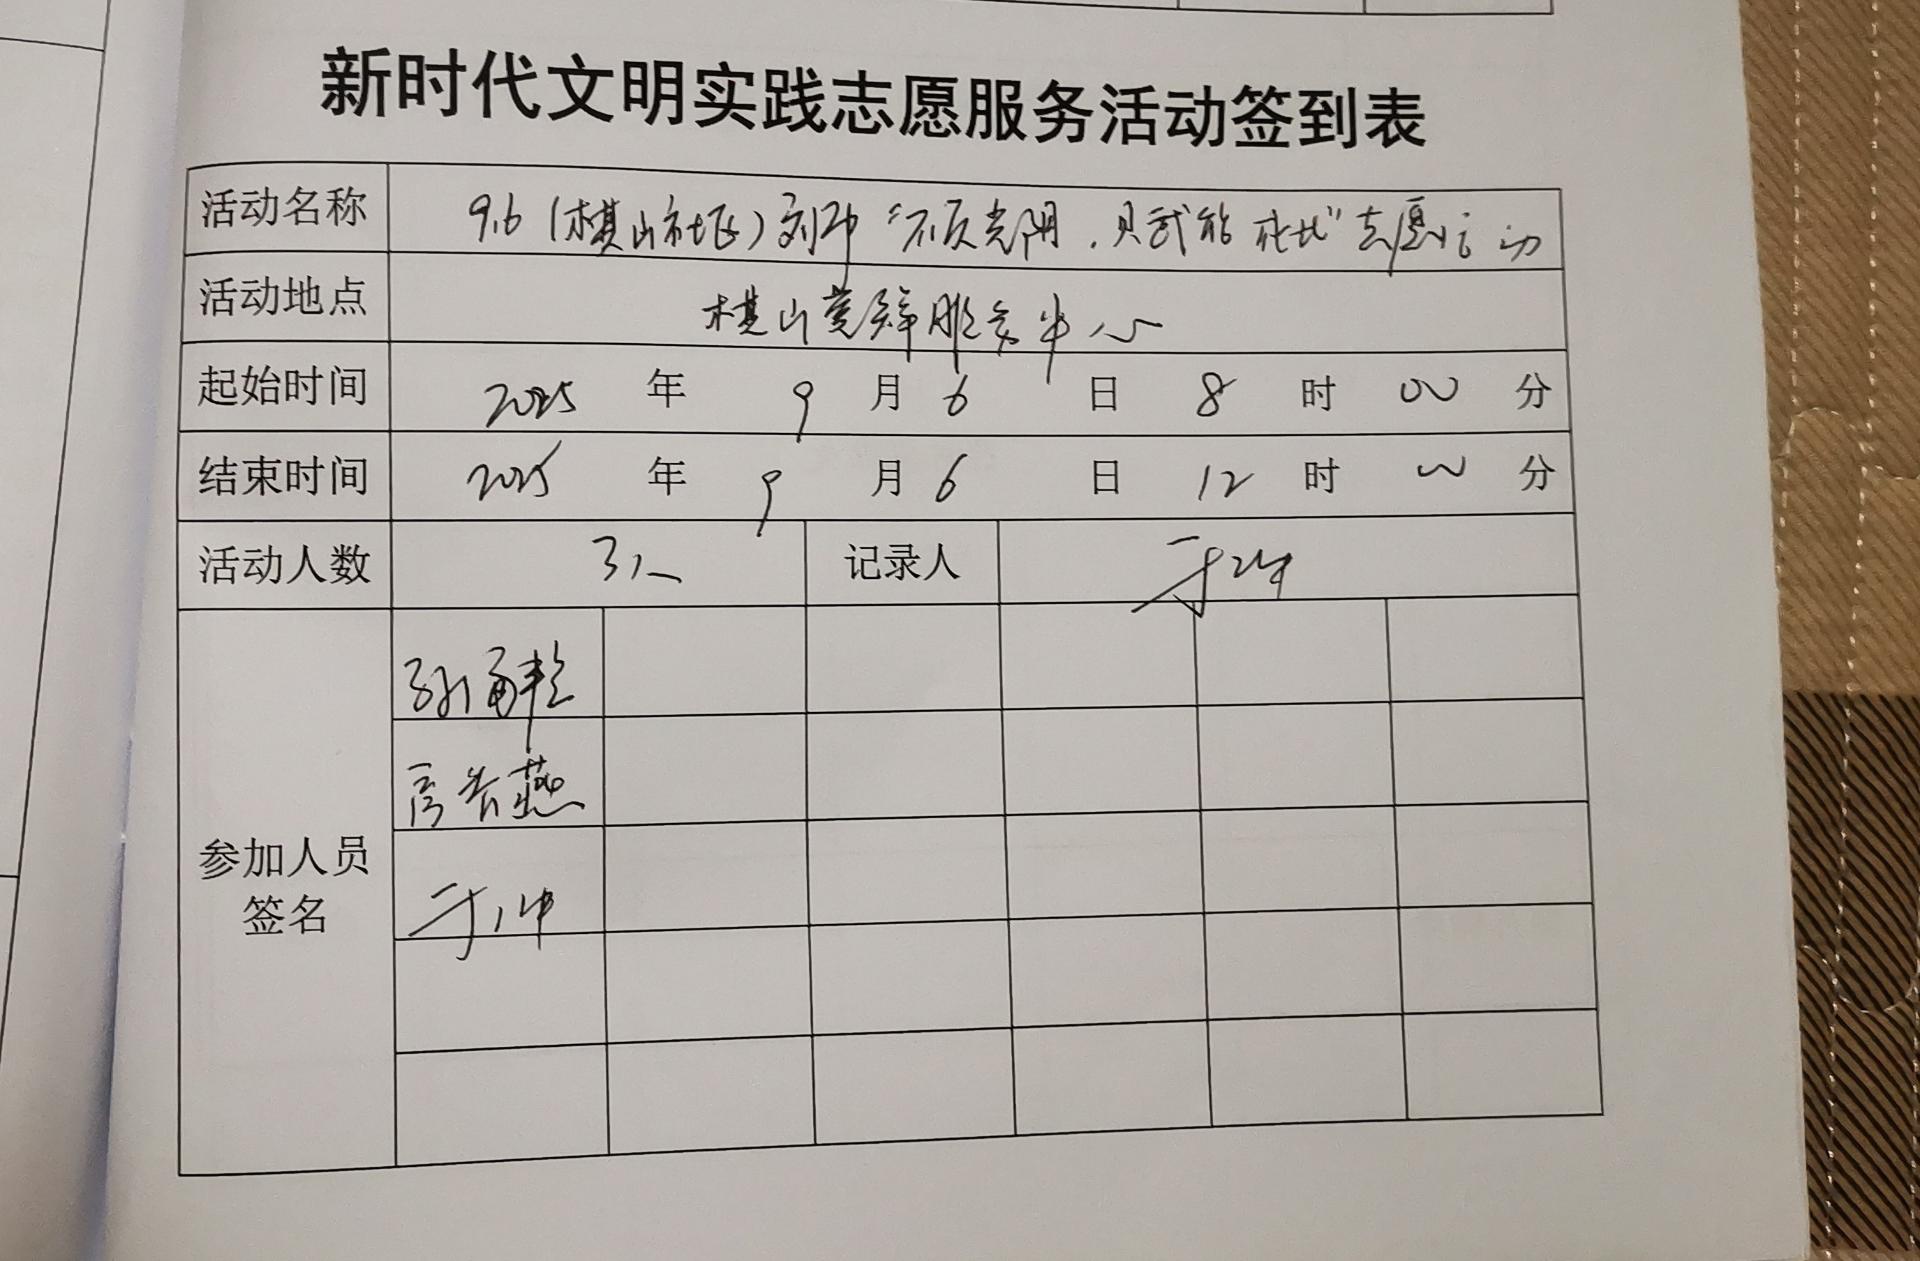 新时代文明实践志愿服务活动签到表
活动名称 9.6（棋山社区）"不负光阴，只武能 "志愿活动
活动地点 棋山党群服务中心
起始时间 2025 年 9 月 6 日 8 时 00 分
结束时间 2025 年 9 月 6 日 12 时 00 分
活动人数 3人 记录人 于坤
参加人员
签名
孙
高 燕
于坤